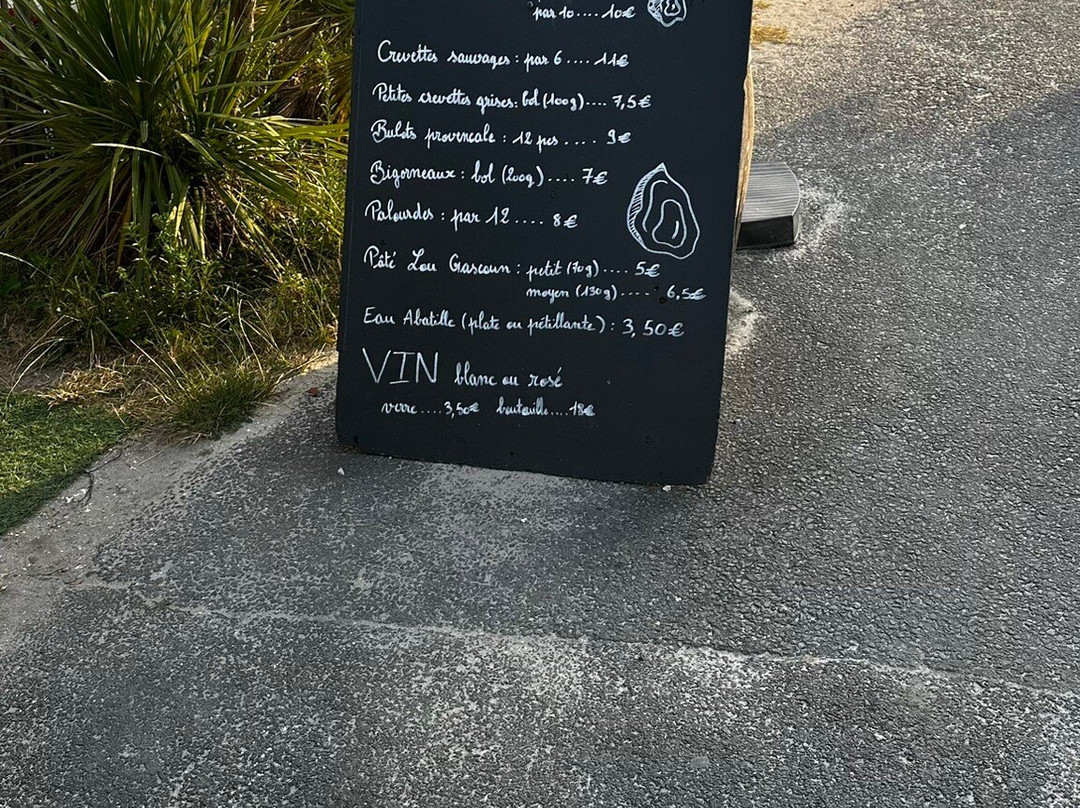 par 10....10€
Crevettes sauvages : par 6....11€
Petites crevettes grises: bol (100g)....7,5€
Bulots provencale : 12 pcs ....9€
Bigorneaux : bol (200g)....7€
Palourdes : par 12....8€
Pâté Lou Gascoun : petit (70g)....5€
moyen (130g)....6,5€
Eau Abatille (plate ou pétillante) : 3,50€
VIN blanc ou rosé
verre....3,50€ bouteille....18€